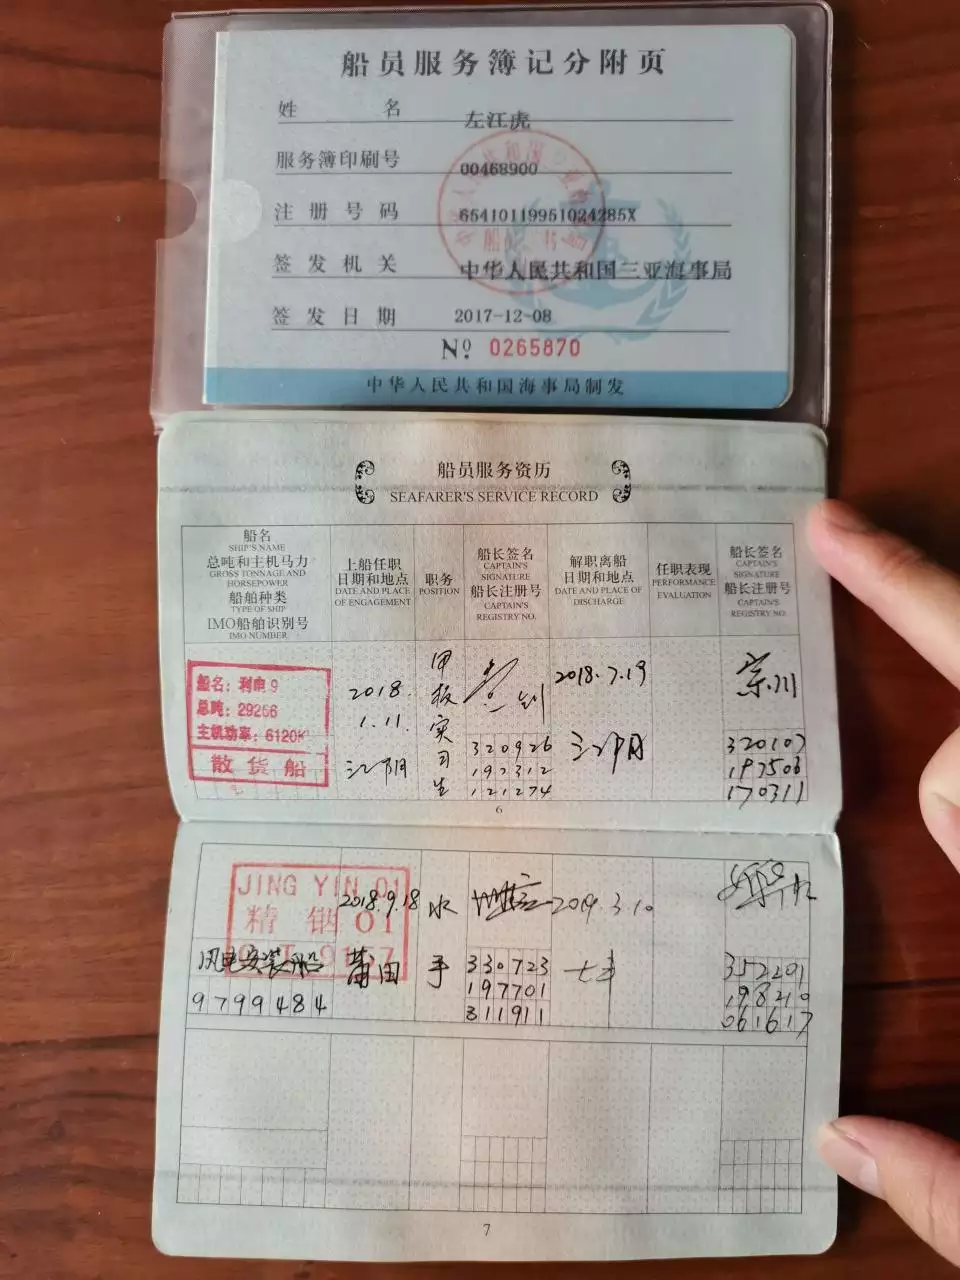 船员服务簿记分附页
姓 名 左江虎
服务簿印刷号 00468900
注册号码 65410119951024285X
签发机关 中华人民共和国三亚海事局
签发日期 2017-12-08
Nº 0265870
中华人民共和国海事局制发
船员服务资历
SEAFARER'S SERVICE RECORD
船名
SHIP'S NAME
总吨和主机马力
GROSS TONNAGE AND
HORSEPOWER
船舶种类
TYPE OF SHIP
IMO船舶识别号
IMO NUMBER
上船任职
日期和地点
DATE AND PLACE
OF ENGAGEMENT
职务
POSITION
船长签名
CAPTAIN'S
SIGNATURE
船长注册号
CAPTAIN'S
REGISTRY NO.
解职离船
日期和地点
DATE AND PLACE OF
DISCHARGE
任职表现
PERFORMANCE
EVALUATION
船长签名
CAPTAIN'S
SIGNATURE
船长注册号
CAPTAIN'S
REGISTRY NO.
船名：利电9
总吨：29266
主机功率：6120K
散货船
2018.
1.11
江阴
甲板实习生
320926
197312
121274
2018.7.19
江阴
宗川
320107
197506
170311
6
JING YIN 01
精铟01
风电安装船
9799484
2018.9.18
莆田
水手
330723
197701
311911
2019.3.10
352201
198210
061617
7